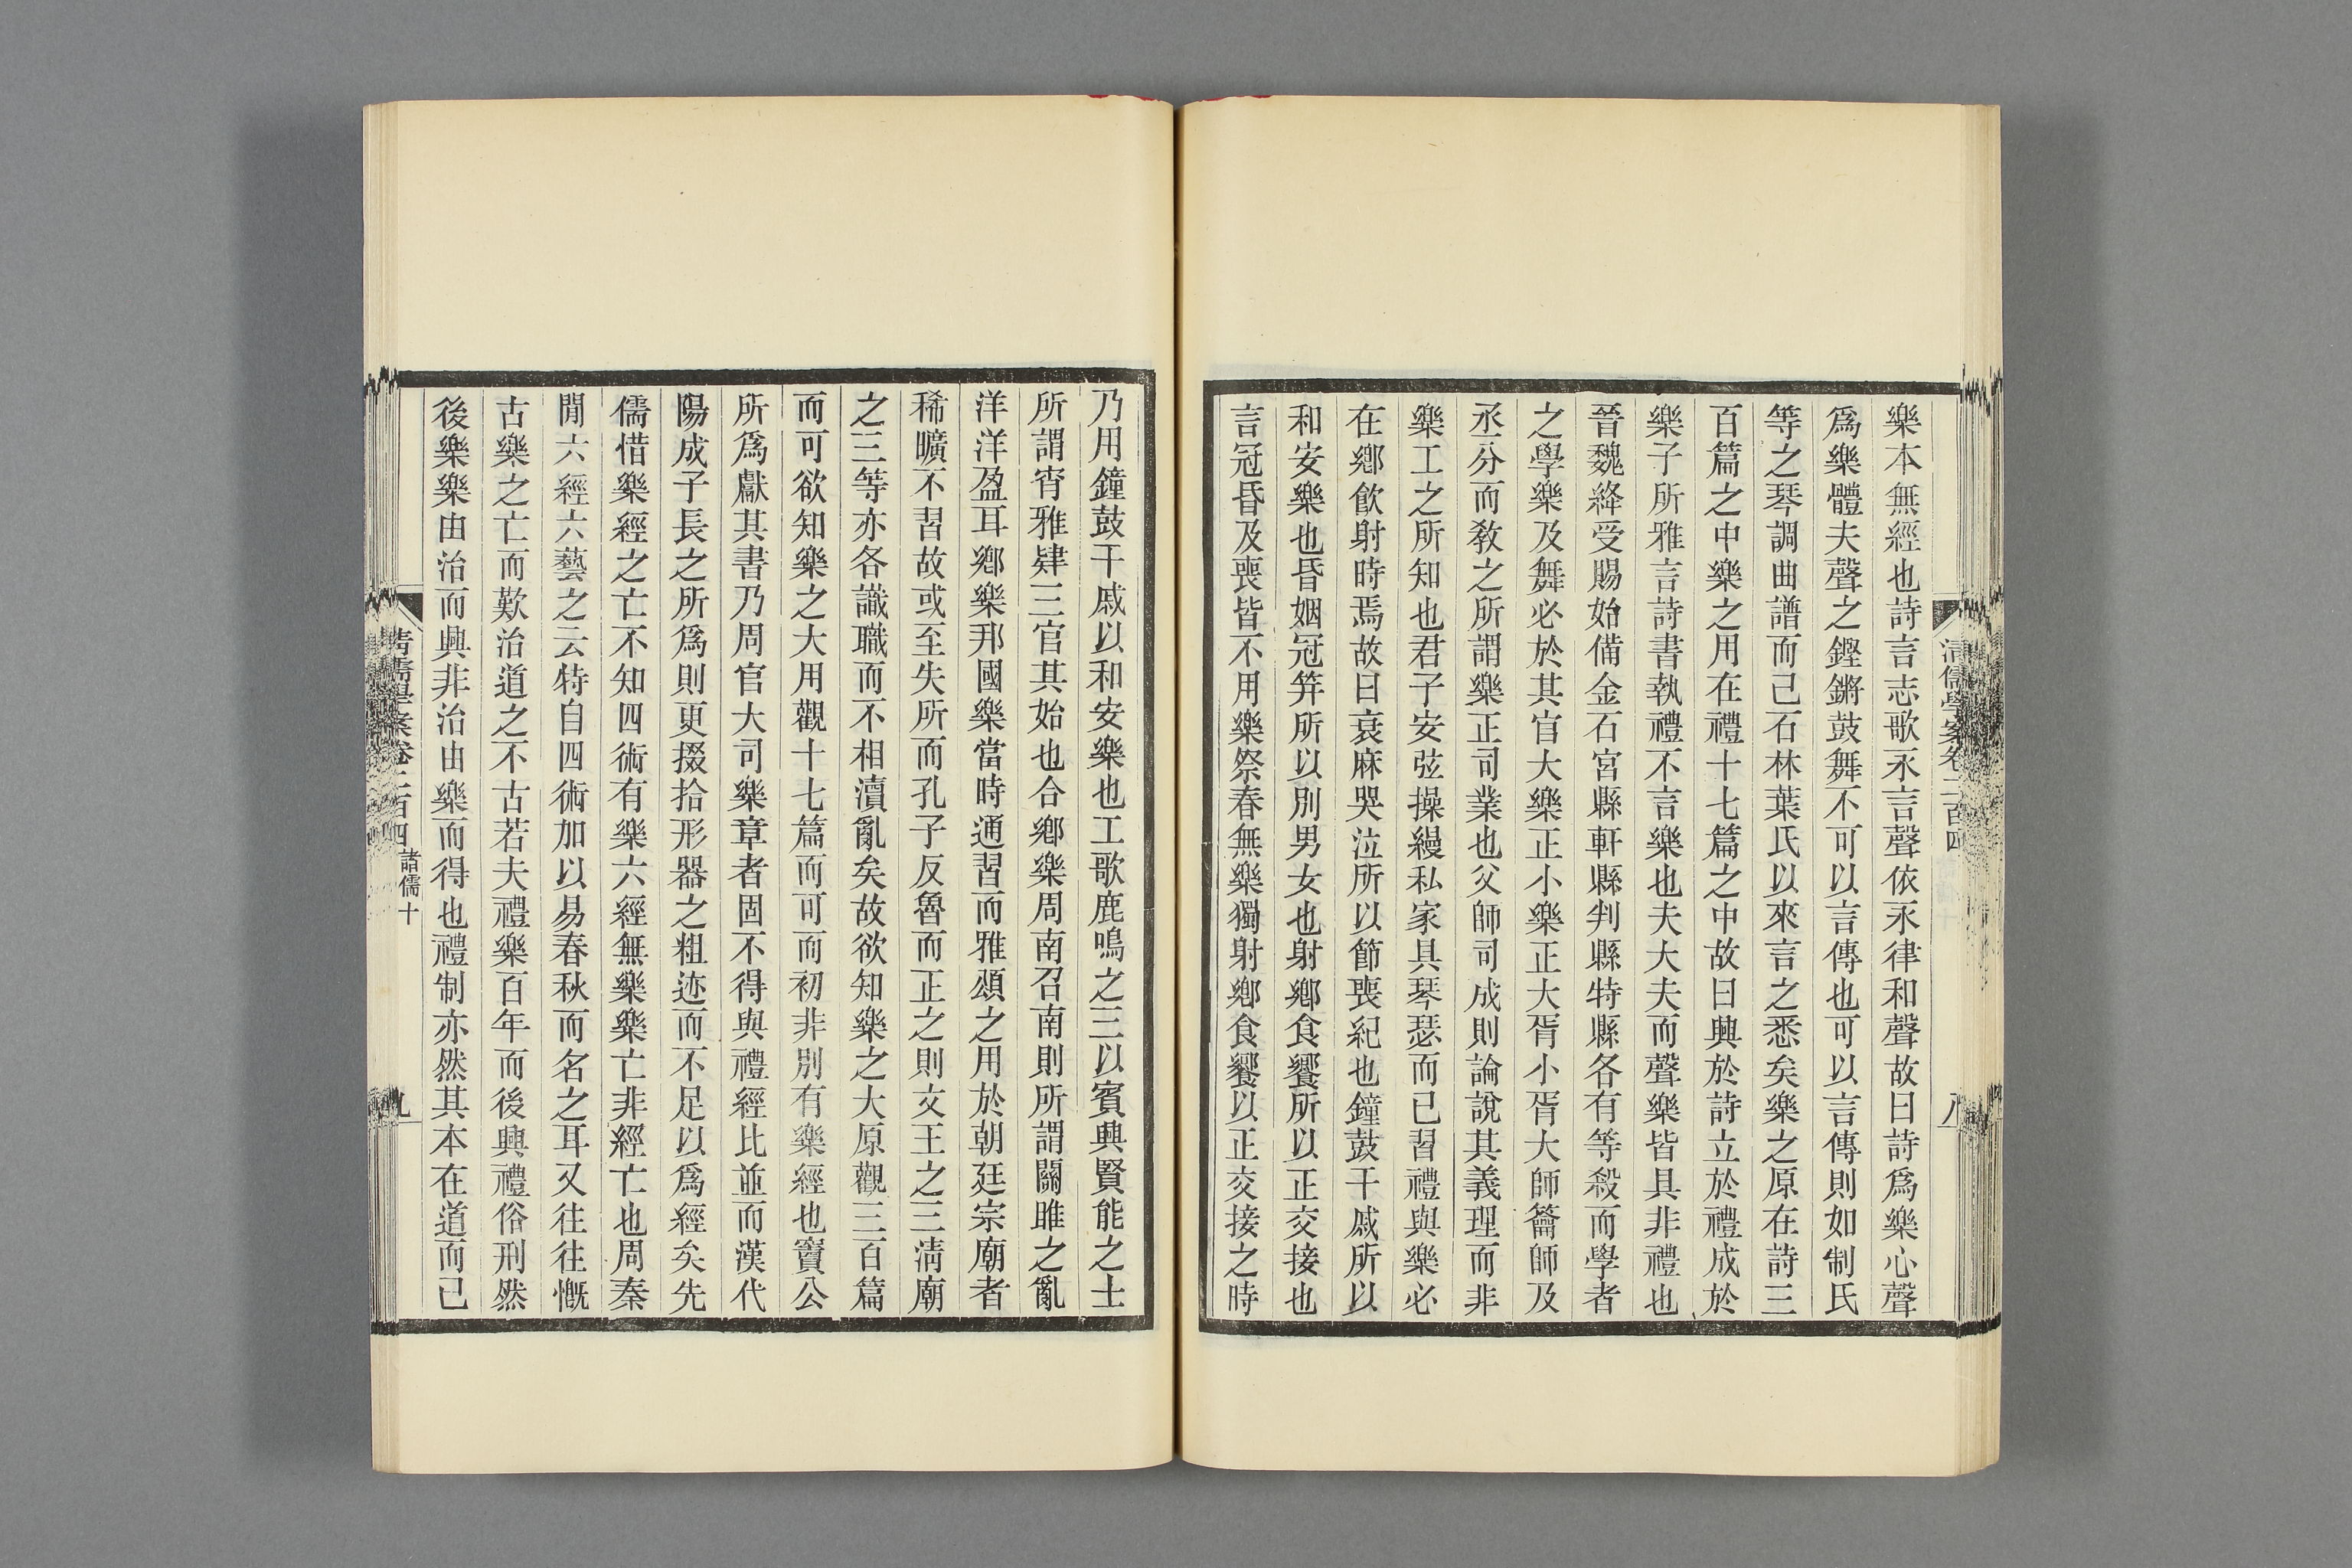 樂本無經也詩言志歌永言聲依永律和聲故曰詩爲樂心聲
爲樂體夫聲之鏗鏘鼓舞不可以言傳也可以言傳則如制氏
等之琴調曲譜而已石林葉氏以來言之悉矣樂之原在詩三
百篇之中樂之用在禮十七篇之中故曰興於詩立於禮成於
樂子所雅言詩書執禮不言樂也夫大夫而聲樂皆具非禮也
晉魏絳受賜始備金石宮縣軒縣判縣特縣各有等殺而學者
之學樂及舞必於其官大樂正小樂正大胥小胥大師籥師及
丞分而敎之所謂樂正司業也父師司成則論說其義理而非
樂工之所知也君子安弦操縵私家具琴瑟而已習禮與樂必
在鄉飮射時焉故曰衰麻哭泣所以節喪紀也鐘鼓干戚所以
和安樂也昏姻冠笄所以別男女也射鄉食饗所以正交接也
言冠昏及喪皆不用樂祭春無樂獨射鄉食饗以正交接之時
清儒學案卷二百四
八
乃用鐘鼓干戚以和安樂也工歌鹿鳴之三以賓興賢能之士
所謂宵雅肄三官其始也合鄉樂周南召南則所謂關雎之亂
洋洋盈耳鄉樂邦國樂當時通習而雅頌之用於朝廷宗廟者
稀曠不習故或至失所而孔子反魯而正之則文王之三清廟
之三等亦各識職而不相瀆亂矣故欲知樂之大原觀三百篇
而可欲知樂之大用觀十七篇而可而初非別有樂經也竇公
所爲獻其書乃周官大司樂章者固不得與禮經比並而漢代
陽成子長之所爲則更掇拾形器之粗迹而不足以爲經矣先
儒惜樂經之亡不知四術有樂六經無樂樂亡非經亡也周秦
閒六經六藝之云特自四術加以易春秋而名之耳又往往慨
古樂之亡而歎治道之不古若夫禮樂百年而後興禮俗刑然
後樂樂由治而興非治由樂而得也禮制亦然其本在道而已
清儒學案卷二百四
諸儒十
九